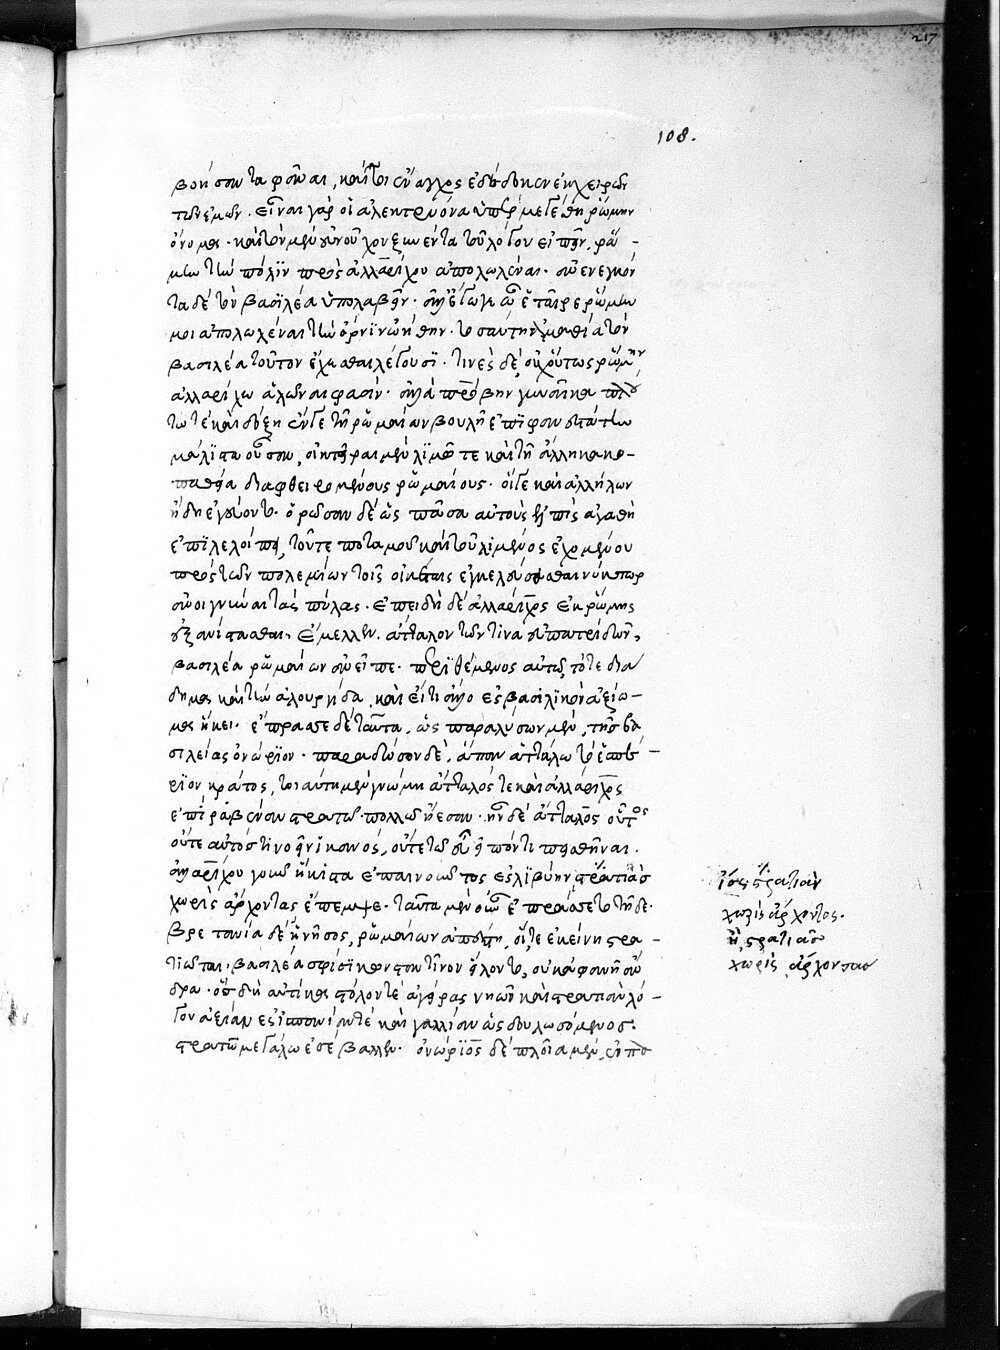 βοήσαντα φᾶναι, καίτοι ἔναγχος ἐδήδοκεν ἐκ χειρῶν
τῶν ἐμῶν. εἶναι γάρ οἱ ἀλεκτρυόνα ὑπερμεγέθη ῥώμην
ὄνομα. καὶ τὸν μὲν εὐνοῦχον ξυνέντα τοῦ λόγου εἰπεῖν, ῥώ-
μην τὴν πόλϊν πρὸς ἀλλαρίχου ἀπολωλέναι. ἀνενεγκόν
τα δὲ τὸν βασϊλέα ὑπολαβεῖν. ἀλλ' ἔγωγε ὦ ἑταῖρε ῥώμην
μοι ἀπολωλέναι τὴν ὄρνϊν ὠήθην. τοσαύτη ἀμαθία τὸν
βασιλέα τοῦτον ἔχεσθαι λέγουσϊ. τινὲς δὲ οὐχ οὕτως ῥώμην
ἀλλαρίχω ἁλῶναι φασίν. ἀλλὰ πρόβην γυναῖκα πλού
τω τὲ καὶ δόξη ἔν γε τῆ ῥωμαίων βουλῆ ἐπϊφανεστάτην
μάλϊστα οὖσαν, οἰκτεῖραι μὲν λϊμῶ τε καὶ τῆ ἄλλη κακο-
παθεία διαφθειρομένους ῥωμαίους. οἵγε καὶ ἀλλήλων
ἤδη ἐγεύοντο. ὁρῶσαν δὲ ὡς πᾶσα αὐτοὺς ἐλπὶς ἀγαθὴ
ἐπϊλελοίπει, τοῦτε ποταμοῦ καὶ τοῦ λϊμένος ἐχομένου
πρὸς τῶν πολεμίων τοῖς οἰκέταις ἐγκελεύσασθαι νύκτωρ
ἀνοιγνύναι τὰς πύλας. ἐπειδὴ δὲ ἀλλάριχος ἐκ ῥώμης
ἐξανίστασθαι ἔμελλεν. ἄτταλον τῶν τινα εὐπατριδῶν,
βασιλέα ῥωμαίων ἀνεῖπε. περϊθέμενος αὐτῶ, τότε διά
δημα καὶ τὴν ἁλουργίδα, καὶ εἴ τι ἄλλο ἐς βασϊλϊκὸν ἀξίω-
μα ἥκει. ἔπρασσε δὲ ταῦτα, ὡς παραλύσων μὲν, τῆς βα
σιλείας ὀνώρϊον. παραδώσων δὲ, ἅπαν ἀττάλω τὸ ἑσπέ-
ρϊον κράτος, τοιαύτη μὲν γνώμη ἄτταλός τε καὶ ἀλλάριχος
ἐπὶ ῥάβενναν στρατῶ πολλῶ ἤεσαν. ἦν δὲ ἄτταλος οὗτος
οὔτε αὐτός τι νοεῖν ἱκανὸς, οὔτε τῶ εὖ εἰπόντι πεισθῆναι.
ἀλλαρίχου γοῦν ἥκιστα ἐπαινοῦντος ἐς λϊβύην στρατιᾶς
χωρὶς ἄρχοντας ἔπεμψε. ταῦτα μὲν οὖν ἐπράσσετο τῆδε.
βρεττανία δὲ ἡ νῆσος, ῥωμαίων ἀπέστη, οἵτε ἐκείνη στρα-
τιῶται. βασιλέα σφίσϊ κωνσταντῖνον εἵλοντο, οὐκ ἀφανῆ ἄν
δρα. ὃς δὴ αὐτίκα στόλον τὲ ἀγείρας νηῶν καὶ στρατιὰν λό-
γου ἀξίαν ἐς ἱσπανίαν τὲ καὶ γαλλίαν ὡς δουλωσόμενος.
στρατῶ μεγάλω ἐσέβαλλεν. ὀνώριος δὲ πλοῖα μὲν,
108.
217
ἴσως στρατιὰν
χωρὶς ἄρχοντος.
ἢ στρατιᾶς
χωρὶς ἄρχοντας